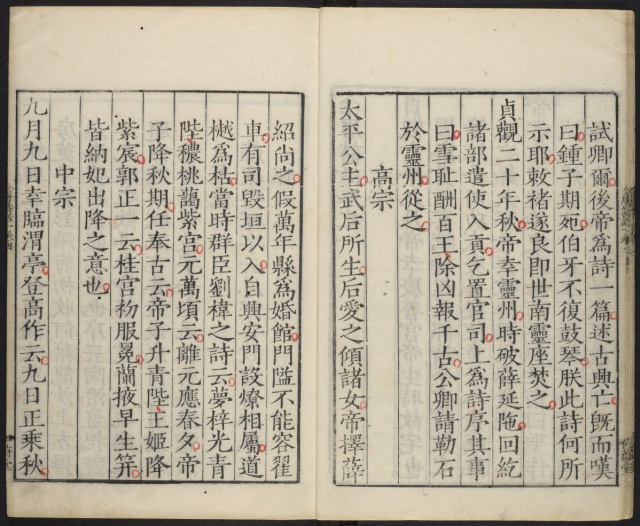 試卿爾後帝爲詩一篇述古興亡旣而嘆
曰鍾子期死伯牙不復鼓琴朕此詩何所
示耶敕褚遂良即世南靈座焚之
貞觀二十年秋帝幸靈州時破薛延陁回紇
諸部遣使入貢乞置官司上爲詩序其事
曰雪耻酬百王除凶報千古公卿請勒石
於靈州從之
高宗
太平公主武后所生后愛之傾諸女帝擇薛
紹尚之假萬年縣爲婚館門隘不能容翟
車有司毀垣以入自興安門設燎相屬道
樾爲枯當時群臣劉褘之詩云夢梓光青
陛穠桃藹紫宮元萬頃云離元應春夕帝
子降秋期任奉古云帝子升青陛王姬降
紫宸郭正一云桂宮初服冕蘭掖早生笄
皆納妃出降之意也
中宗
九月九日幸臨渭亭登高作云九日正乘秋